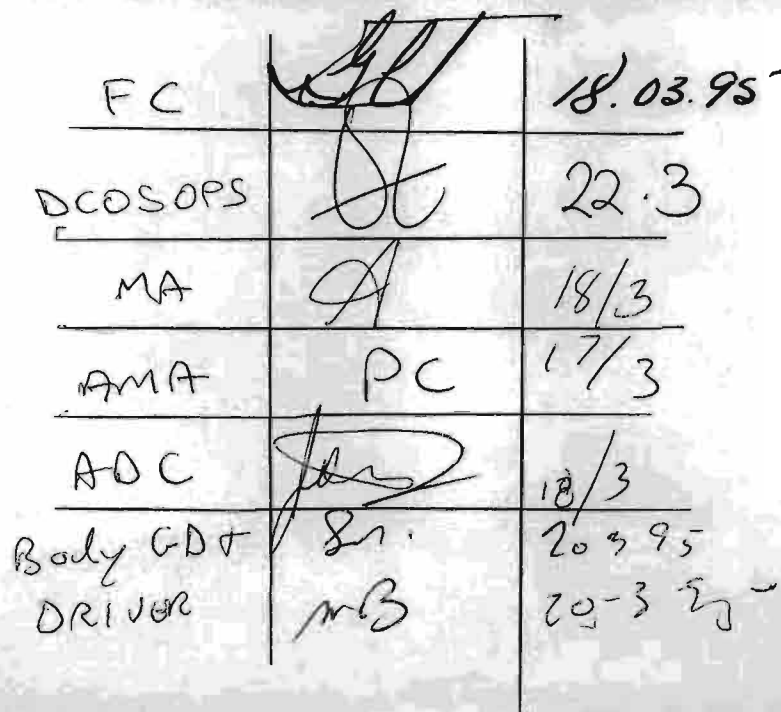 FC 18.03.95
DCOSOPS 22.3
MA 18/3
AMA PC 17/3
ADC 18/3
Body GD+ 20 3 95
DRIVER MB 20-3-95